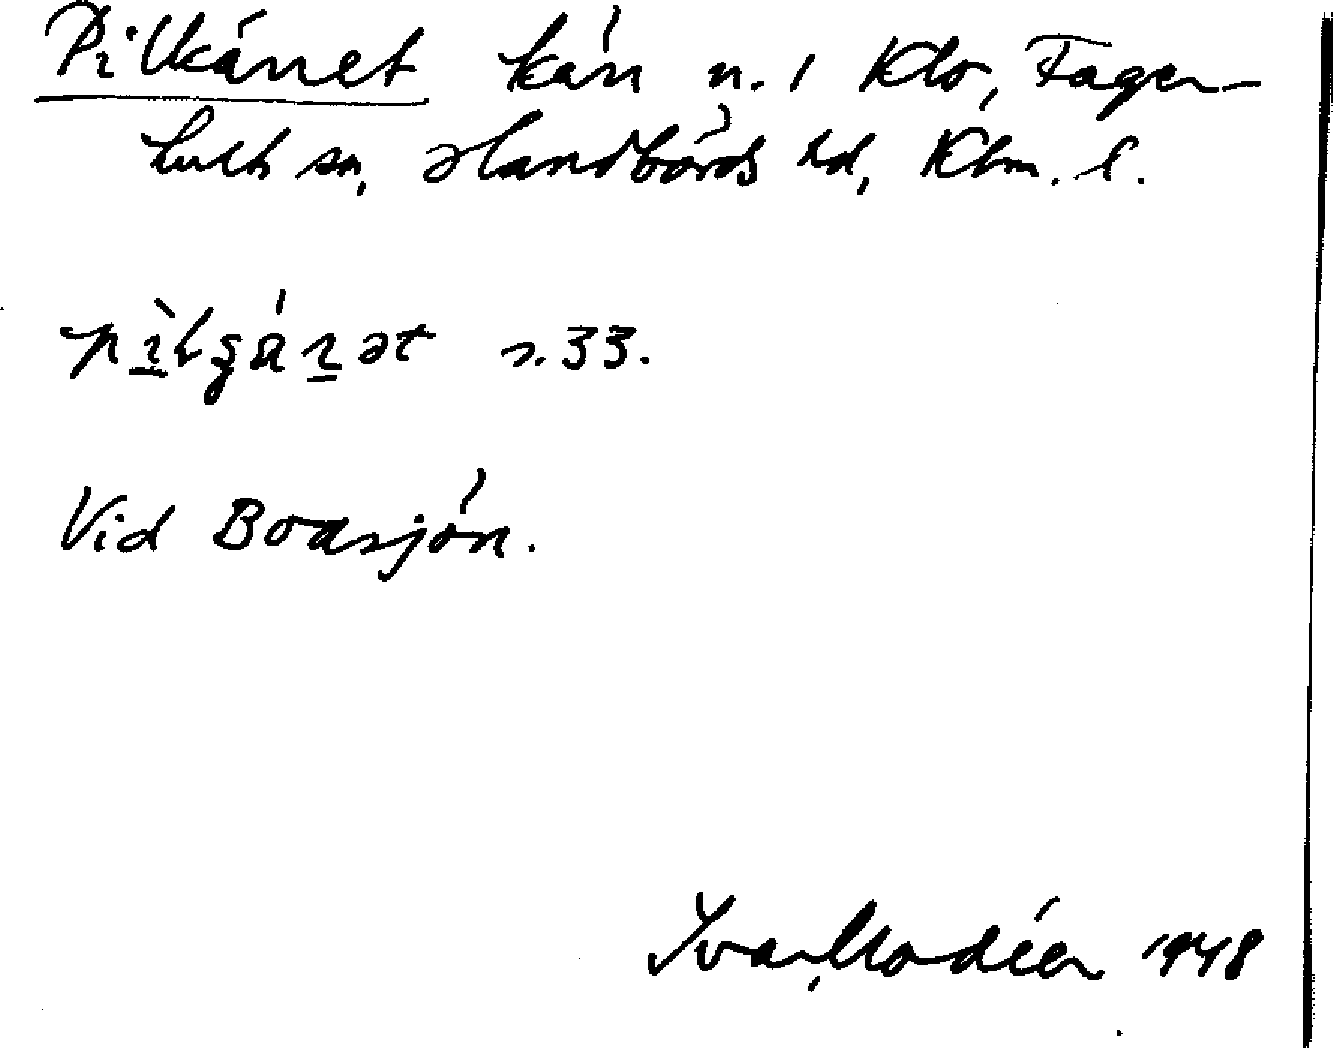 Pilkärret kärr n. i Klo, Fager-
hult sn, Handbörds hd, Klm. l.
s. 33.
Vid Boasjön.
Ivar Modéer 1948